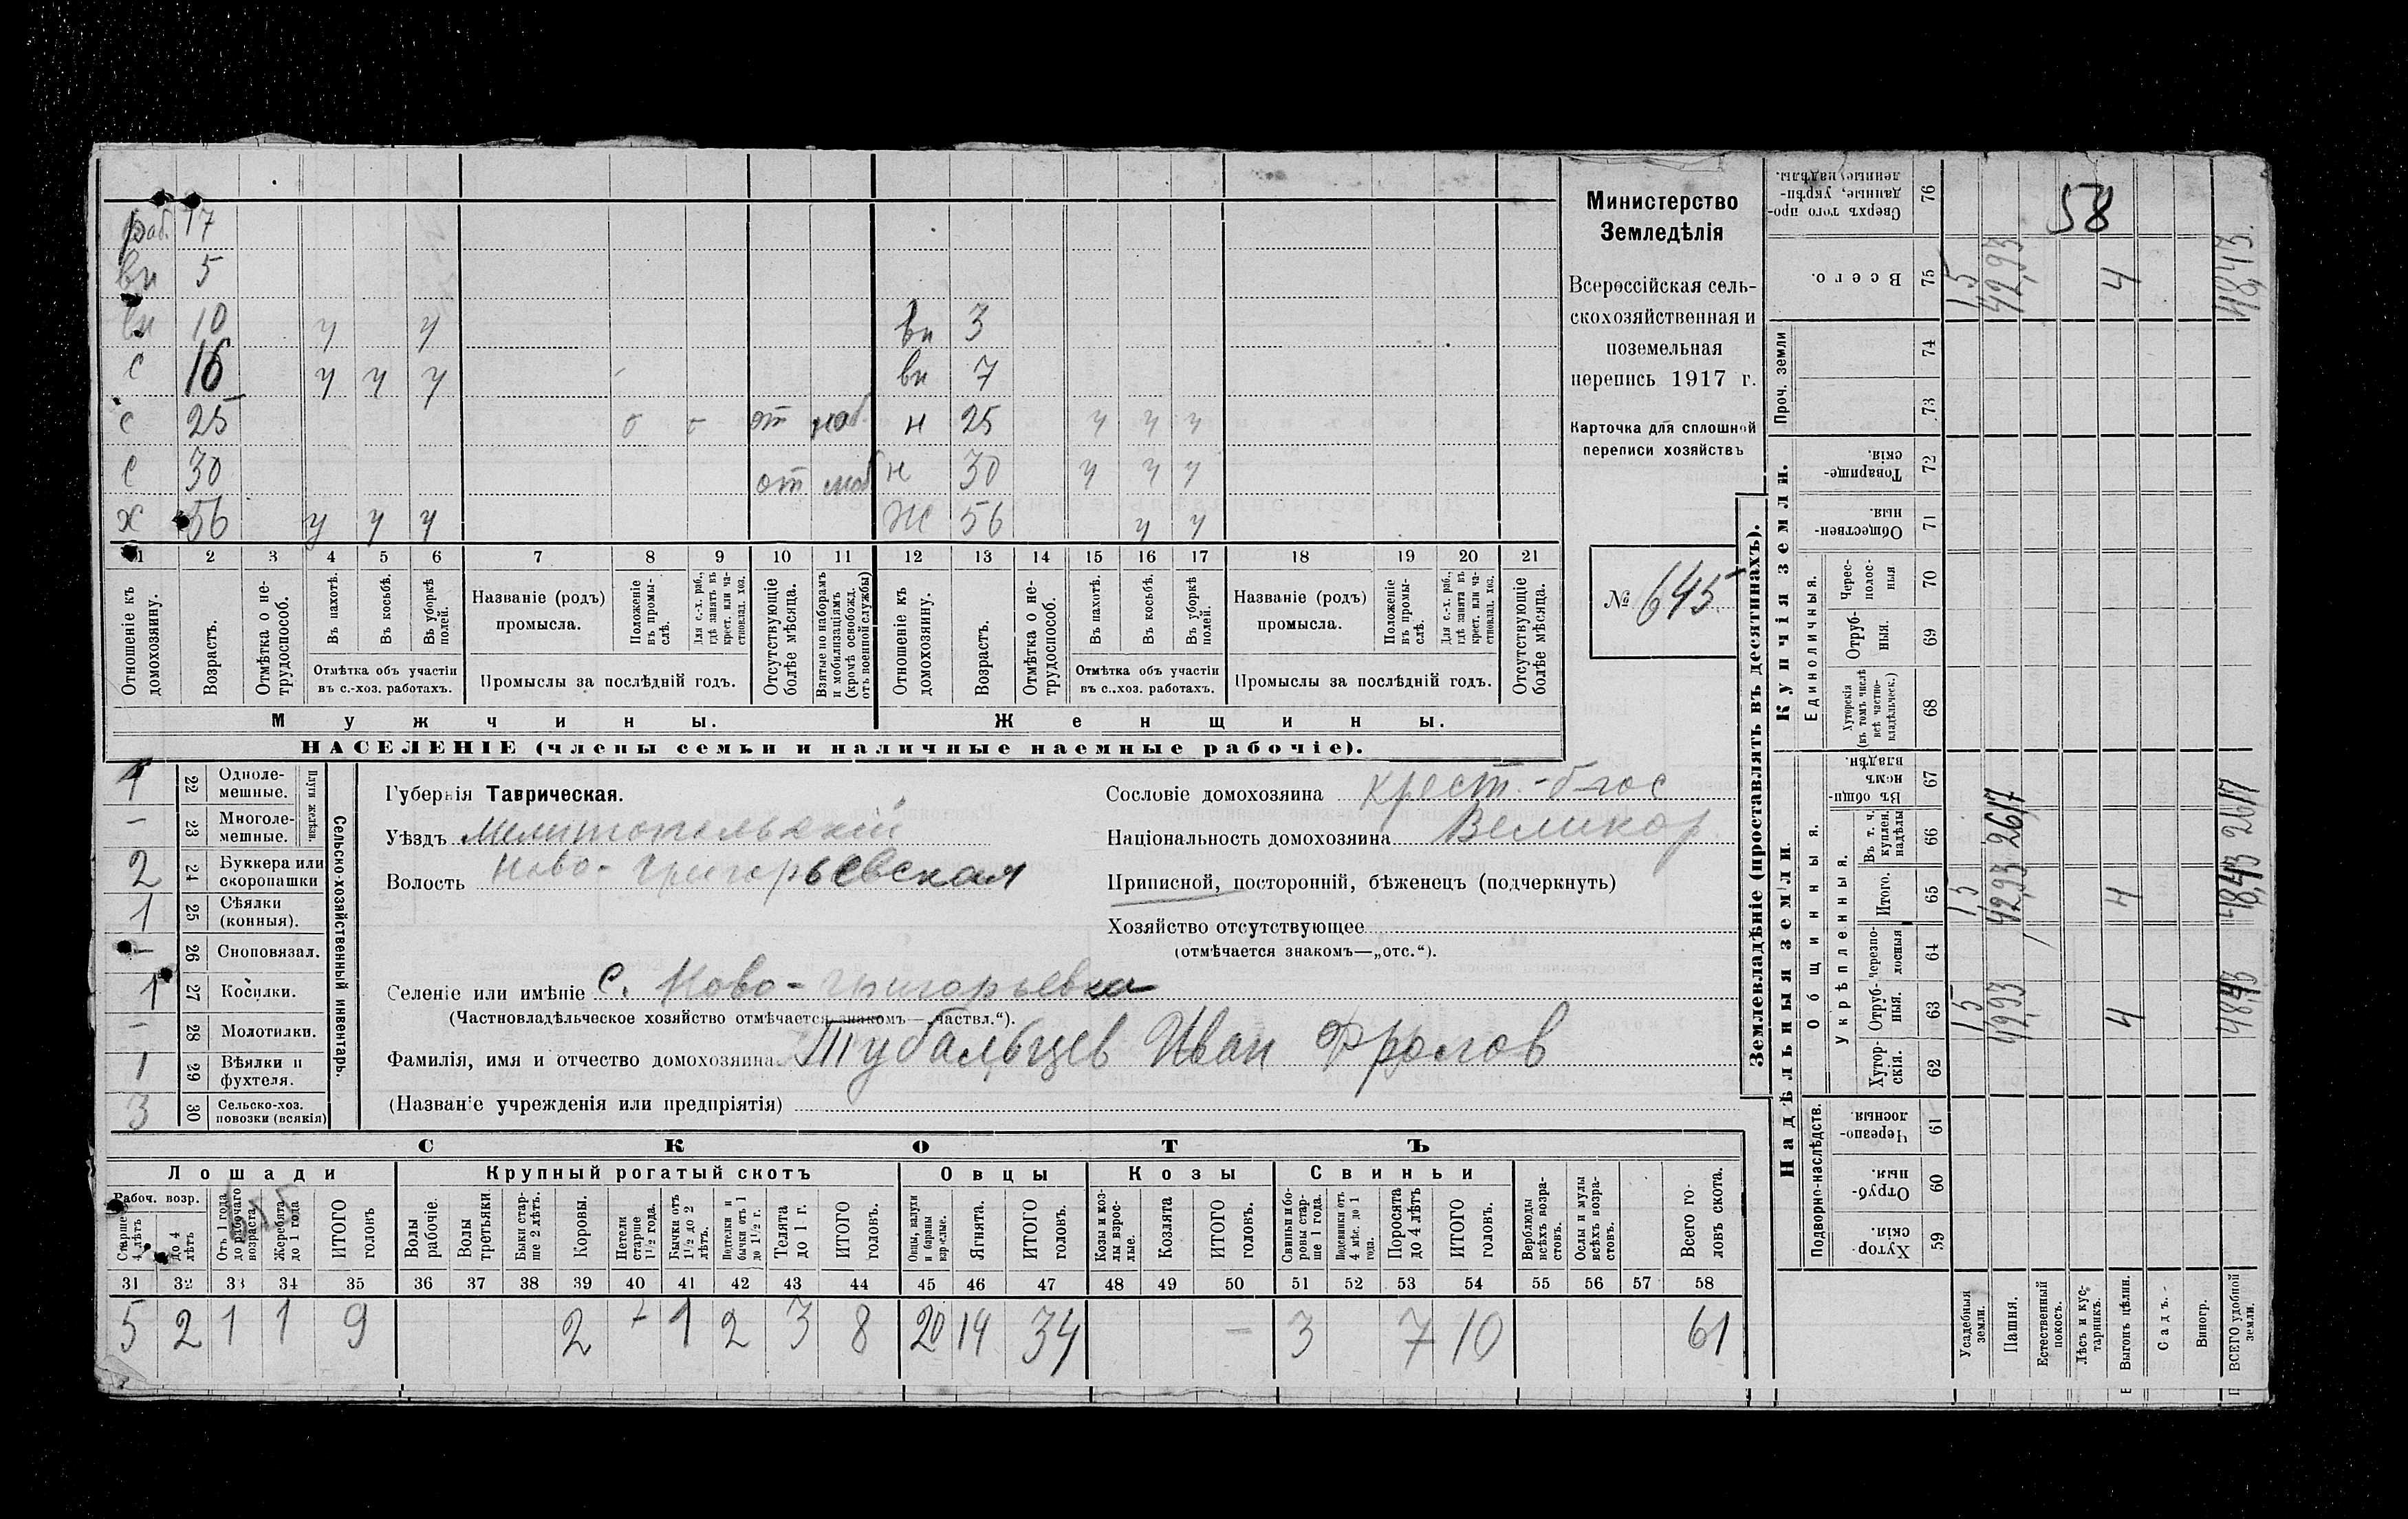 раб. 17
вн 5
вн 10 у у вн 3
с 16 у у у вн 7
с 25 от моб. н 25 у у у
с 30 от моб н 30 у у у
х 56 у у у Ж 56 у у
1 2 3 4 5 6 7 8 9 10 11 12 13 14 15 16 17 18 19 20 21
Отношеніе къ домохозяину.
Возрастъ.
Отмѣтка о нетрудоспособ.
Въ пахотѣ.
Въ косьбѣ.
Въ уборкѣ полей.
Отмѣтка объ участіи въ с.-хоз. работахъ.
Названіе (родъ) промысла.
Положеніе въ промыслѣ.
Для с.-х. раб., гдѣ занятъ въ крест. или частновлад. хоз.
Промыслы за послѣдній годъ.
Отсутствующіе болѣе мѣсяца.
Взятые по наборамъ и мобилизаціямъ (кромѣ освобожд. отъ военной службы)
Отношеніе къ домохозяину.
Возрастъ.
Отмѣтка о нетрудоспособ.
Въ пахотѣ.
Въ косьбѣ.
Въ уборкѣ полей.
Отмѣтка объ участіи въ с..хоз. работахъ.
Названіе (родъ) промысла.
Положеніе въ промыслѣ.
Для с.-х. раб., гдѣ занята въ крест. или частновлад. хоз.
Промыслы за послѣдній годъ.
Отсутствующіе болѣе мѣсяца.
Мужчины.
Женщины.
НАСЕЛЕНІЕ (члены семьи и наличные наемные рабочіе).
Министерство
Земледѣлія
Всероссійская сель-
скохозяйственная и
поземельная
перепись 1917 г.
Карточка для сплошной
переписи хозяйствъ
№ 645
Сельско-хозяйственный инвентарь.
Плуги желѣзн.
1 22 Одноле-мешные.
- 23 Многоле-мешные.
2 24 Буккера или скоропашки
1 25 Сѣялки (конныя).
- 26 Сноповязал.
1 27 Косилки.
- 28 Молотилки.
1 29 Вѣялки и фухтеля.
3 30 Сельско-хоз. повозки (всякія)
Губернія Таврическая.
Уѣздъ Мелитопольскій
Волость Ново-Григорьевская
Сословіе домохозяина крест.
Національность домохозяина Великор.
Приписной, посторонній, бѣженецъ (подчеркнуть)
Хозяйство отсутствующее
(отмѣчается знакомъ—„отс.“).
Селеніе или имѣніе с. Ново-Григорьевка
(Частновладѣльческое хозяйство отмѣчается знакомъ—„частвл.“).
Фамилія, имя и отчество домохозяина Тубальцев Иван Фролов
(Названіе учрежденія или предпріятія)
СКОТЪ
Лошади
Крупный рогатый скотъ
Овцы
Козы
Свиньи
Рабоч. возр.
Старше 4 лѣтъ
до 4 лѣтъ
Отъ 1 года до рабочаго возраста
Жеребята до 1 года
ИТОГО головъ
Волы рабочіе.
Волы третьяки.
Быки старше 2 лѣтъ.
Коровы.
Нетели старше 1½ года.
Бычки отъ 1½ до 2 лѣтъ.
Подтелки и бычки отъ 1 до 1½ г.
Телята до 1 г.
ИТОГО головъ.
Овцы, валухи и бараны взрослые.
Ягнята.
ИТОГО головъ.
Козы и козлы взрослые.
Козлята
ИТОГО головъ.
Свиньи и боровы старше 1 года.
Подсвинки отъ 4 мѣс. до 1 года.
Поросята до 4 лѣтъ
ИТОГО головъ.
Верблюды всѣхъ возрастовъ.
Ослы и мулы всѣхъ возрастовъ.
Всего головъ скота.
31 32 33 34 35 36 37 38 39 40 41 42 43 44 45 46 47 48 49 50 51 52 53 54 55 56 57 58
5 2 1 1 9 2 1 2 3 8 20 14 34 - 3 7 10 61
Землевладѣніе (проставлять въ десятинахъ).
Купчія земли.
Надѣльныя земли.
Сверхъ того проданные, укрѣпленные надѣлы. 76 58
Всего. 75 1,5 42,93 4 48,43.
Проч. земли
74
73
Товарищескія. 72
Общественныя. 71
Единоличныя.
Чересполосныя 70
Отрубныя. 69
Хуторскія (въ томъ числѣ всѣ частновладѣльческ.) 68
Общинныя.
Въ общинномъ владѣн. 67
Укрѣпленныя.
Въ т. ч. куплен. надѣлы 66 26,17 26,17
Итого. 65 1,5 42,93 4 48,43
Черезполосныя 64
Отрубныя. 63 1,5 42,93 4 48,43
Хуторскія. 62
Подворно-наслѣдств.
Черезполосныя. 61
Отрубныя. 60
Хуторскія. 59
Усадебныя земли.
Пашня.
Естественный покосъ.
Лѣсъ и кустарникъ.
Выгонъ цѣлин.
Садъ.
Виногр.
ВСЕГО удобной земли.